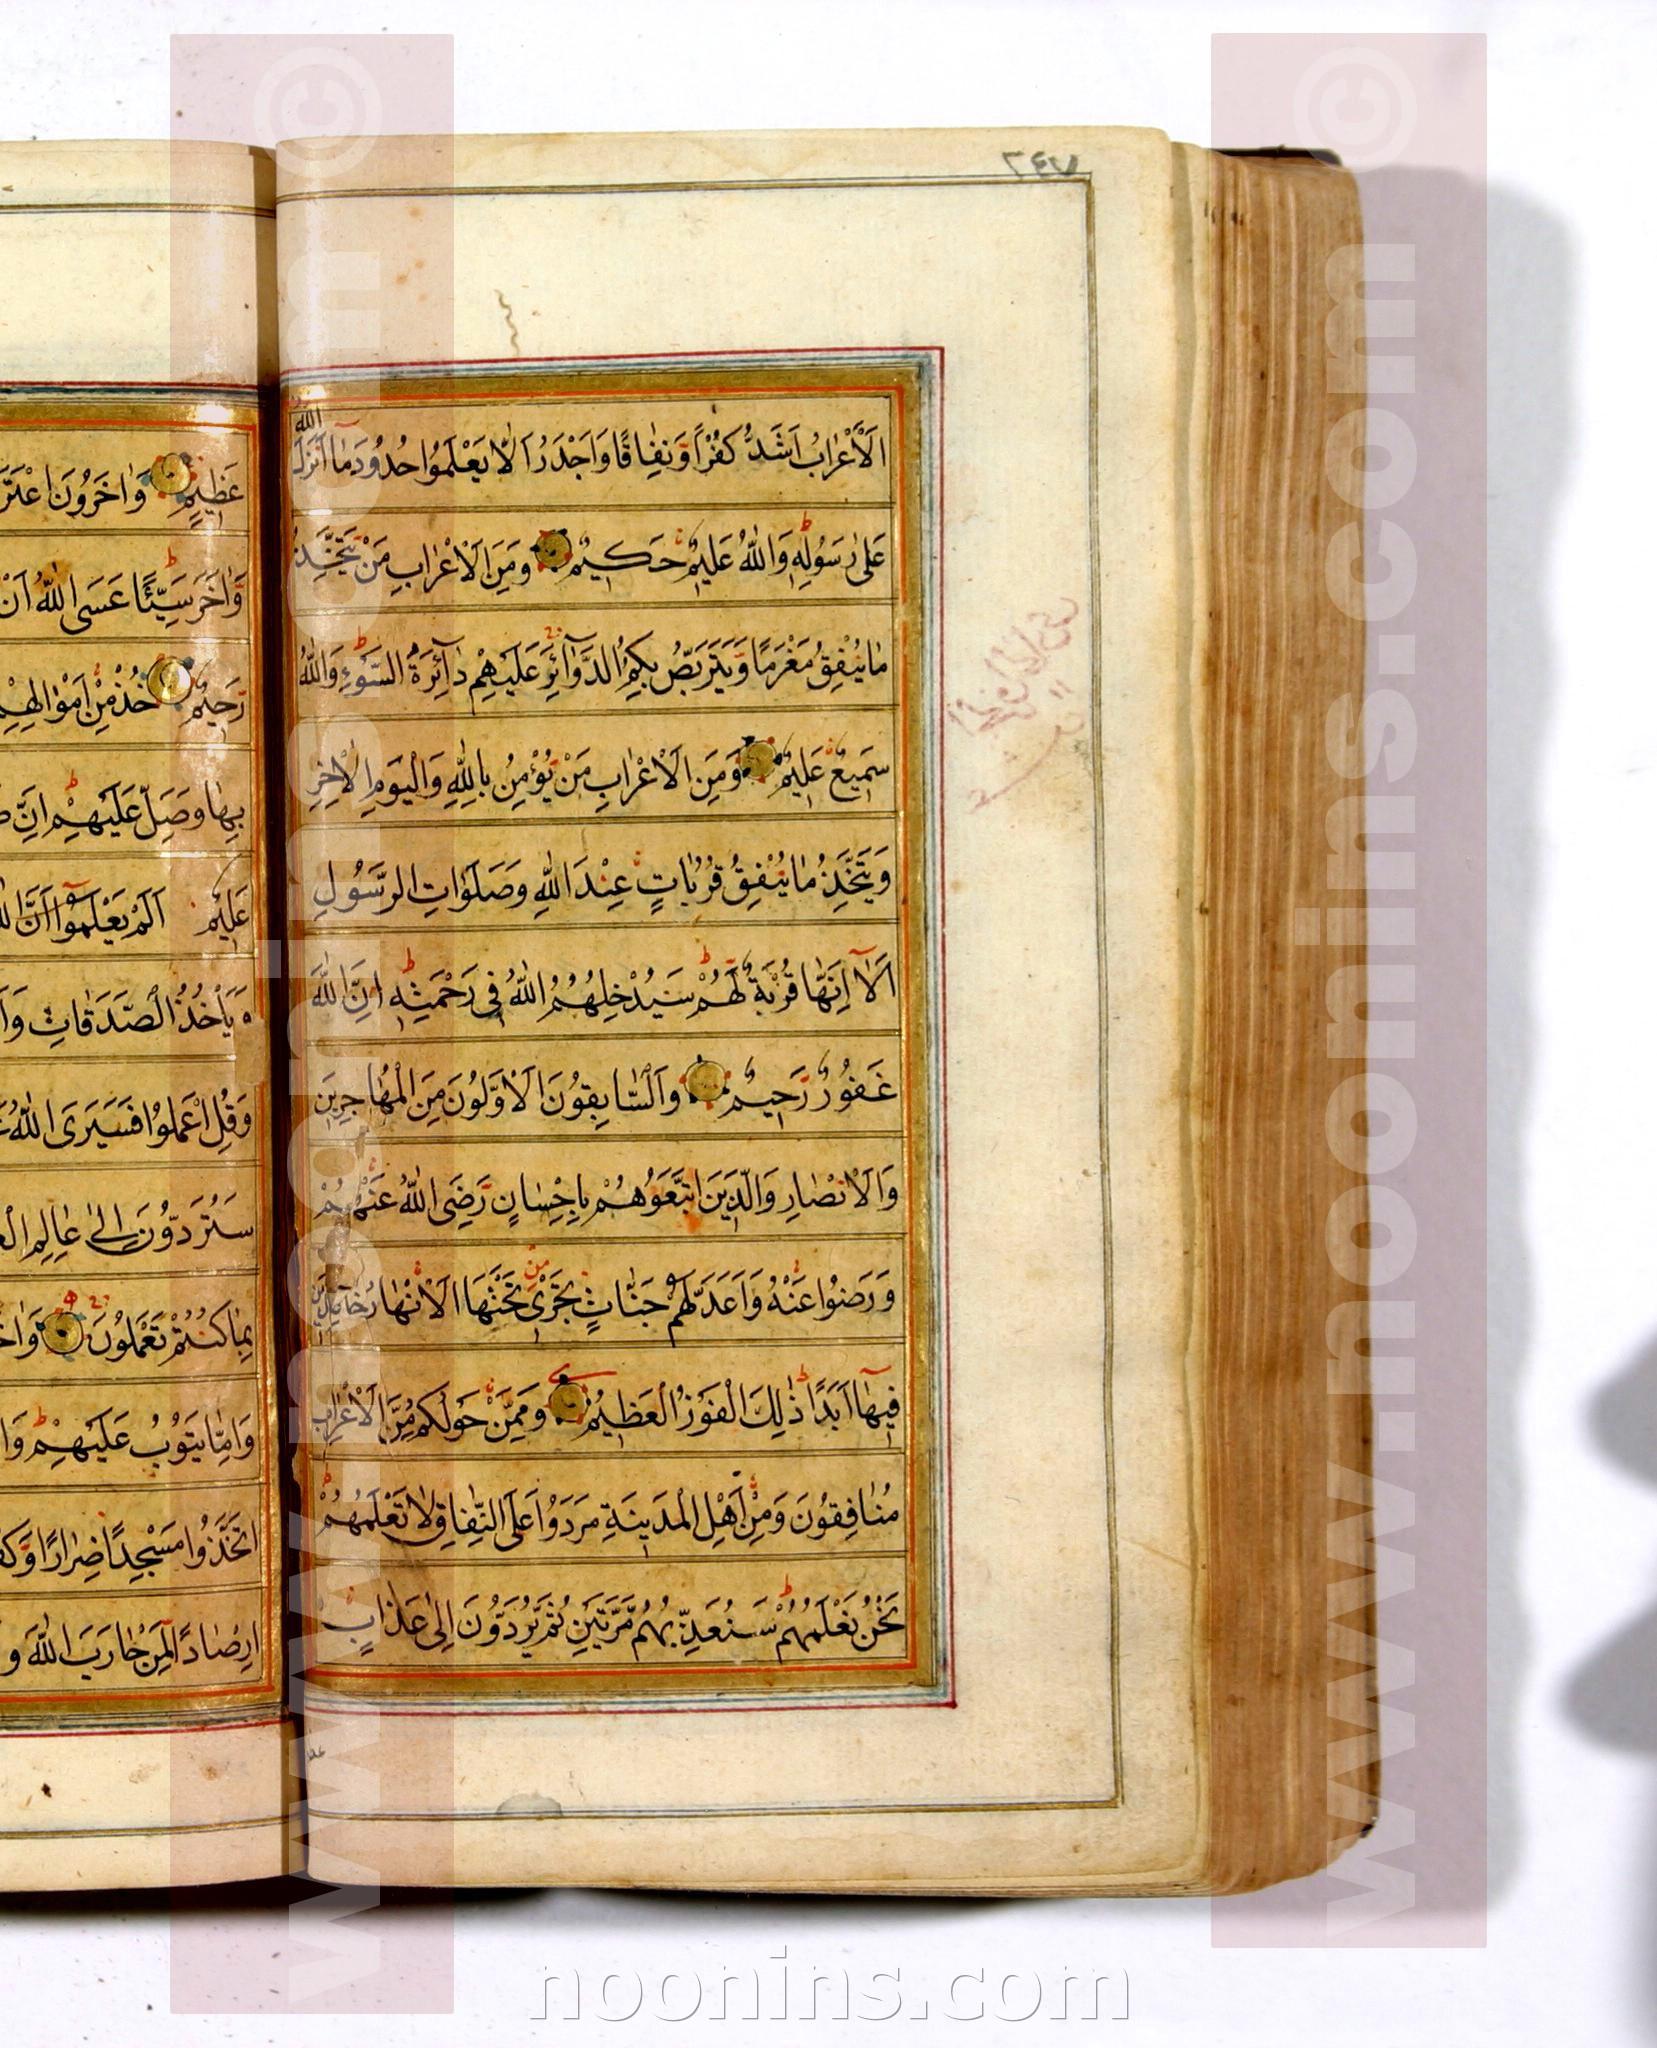 ٢٤٧
الله
اَلْاَعْرَابُ اَشَدُّ كُفْرًا وَنِفَاقًا وَاَجْدَرُ اَلَّا يَعْلَمُوا حُدُودَ مَا اَنْزَلَ
عَلٰى رَسُولِهِ وَاللهُ عَلِيمٌ حَكِيمٌ وَمِنَ الْاَعْرَابِ مَنْ يَتَّخِذُ
مَا يُنْفِقُ مَغْرَمًا وَيَتَرَبَّصُ بِكُمُ الدَّوَآئِرَ عَلَيْهِمْ دَآئِرَةُ السَّوْءِ وَاللهُ
سَمِيعٌ عَلِيمٌ وَمِنَ الْاَعْرَابِ مَنْ يُؤْمِنُ بِاللهِ وَالْيَوْمِ الْاٰخِرِ
وَيَتَّخِذُ مَا يُنْفِقُ قُرُبَاتٍ عِنْدَ اللهِ وَصَلَوَاتِ الرَّسُولِ
اَلَآ اِنَّهَا قُرْبَةٌ لَهُمْ سَيُدْخِلُهُمُ اللهُ فِى رَحْمَتِهِ اِنَّ اللهَ
غَفُورٌ رَحِيمٌ وَالسَّابِقُونَ الْاَوَّلُونَ مِنَ الْمُهَاجِرِينَ
وَالْاَنْصَارِ وَالَّذِينَ اتَّبَعُوهُمْ بِاِحْسَانٍ رَضِىَ اللهُ عَنْهُمْ
وَرَضُوا عَنْهُ وَاَعَدَّ لَهُمْ جَنَّاتٍ تَجْرِى مِنْ تَحْتِهَا الْاَنْهَارُ خَالِدِينَ
فِيهَآ اَبَدًا ذٰلِكَ الْفَوْزُ الْعَظِيمُ وَمِمَّنْ حَوْلَكُمْ مِنَ الْاَعْرَابِ
مُنَافِقُونَ وَمِنْ اَهْلِ الْمَدِينَةِ مَرَدُوا عَلَى النِّفَاقِ لَا تَعْلَمُهُمْ
نَحْنُ نَعْلَمُهُمْ سَنُعَذِّبُهُمْ مَرَّتَيْنِ ثُمَّ يُرَدُّونَ اِلٰى عَذَابٍ
عَظِيمٍ وَاٰخَرُونَ
وَاٰخَرَ سَيِّئًا عَسَى اللهُ اَنْ
رَحِيمٌ خُذْ مِنْ اَمْوَالِهِمْ
بِهَا وَصَلِّ عَلَيْهِمْ اِنَّ
عَلِيمٌ اَلَمْ يَعْلَمُوآ اَنَّ
وَيَاْخُذُ الصَّدَقَاتِ
وَقُلِ اعْمَلُوا فَسَيَرَى اللهُ
سَتُرَدُّونَ اِلٰى عَالِمِ
بِمَا كُنْتُمْ تَعْمَلُونَ
وَاِمَّا يَتُوبُ عَلَيْهِمْ
اتَّخَذُوا مَسْجِدًا ضِرَارًا
اِرْصَادًا لِمَنْ حَارَبَ اللهَ
www.noonins.com ©
www.noonins.com ©
noonins.com